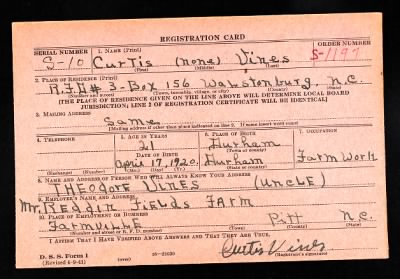 REGISTRATION CARD
SERIAL NUMBER 1. NAME (Print)
S-10 Curtis (none) Vines S-1197
(First) (Middle) (Last)
2. PLACE OF RESIDENCE (Print)
R.F.D # 3-Box 156 Walstonburg, N.C.
(Number and street) (Town, township, village, or city) (County) (State)
[THE PLACE OF RESIDENCE GIVEN ON THE LINE ABOVE WILL DETERMINE LOCAL BOARD
JURISDICTION; LINE 2 OF REGISTRATION CERTIFICATE WILL BE IDENTICAL]
3. MAILING ADDRESS
Same
[Mailing address if other than place indicated on line 2. If same insert word same]
4. TELEPHONE 5. AGE IN YEARS 6. PLACE OF BIRTH 7. OCCUPATION
21 Durham
DATE OF BIRTH (Town or county)
April 17, 1920 Durham Farm Work
(Exchange) (Number) (Mo.) (Day) (Yr.) (State or country)
8. NAME AND ADDRESS OF PERSON WHO WILL ALWAYS KNOW YOUR ADDRESS
THEODORE VINES (UNCLE)
9. EMPLOYER'S NAME AND ADDRESS
Mr. REDDIN FIELDS FARM
10. PLACE OF EMPLOYMENT OR BUSINESS
FARMVILLE Pitt N.C.
(Number and street or R. F. D. number) (Town) (County) (State)
I AFFIRM THAT I HAVE VERIFIED ABOVE ANSWERS AND THAT THEY ARE TRUE.
D. S. S. Form 1
(Revised 6-9-41) Curtis Vines
(Registrant's signature)